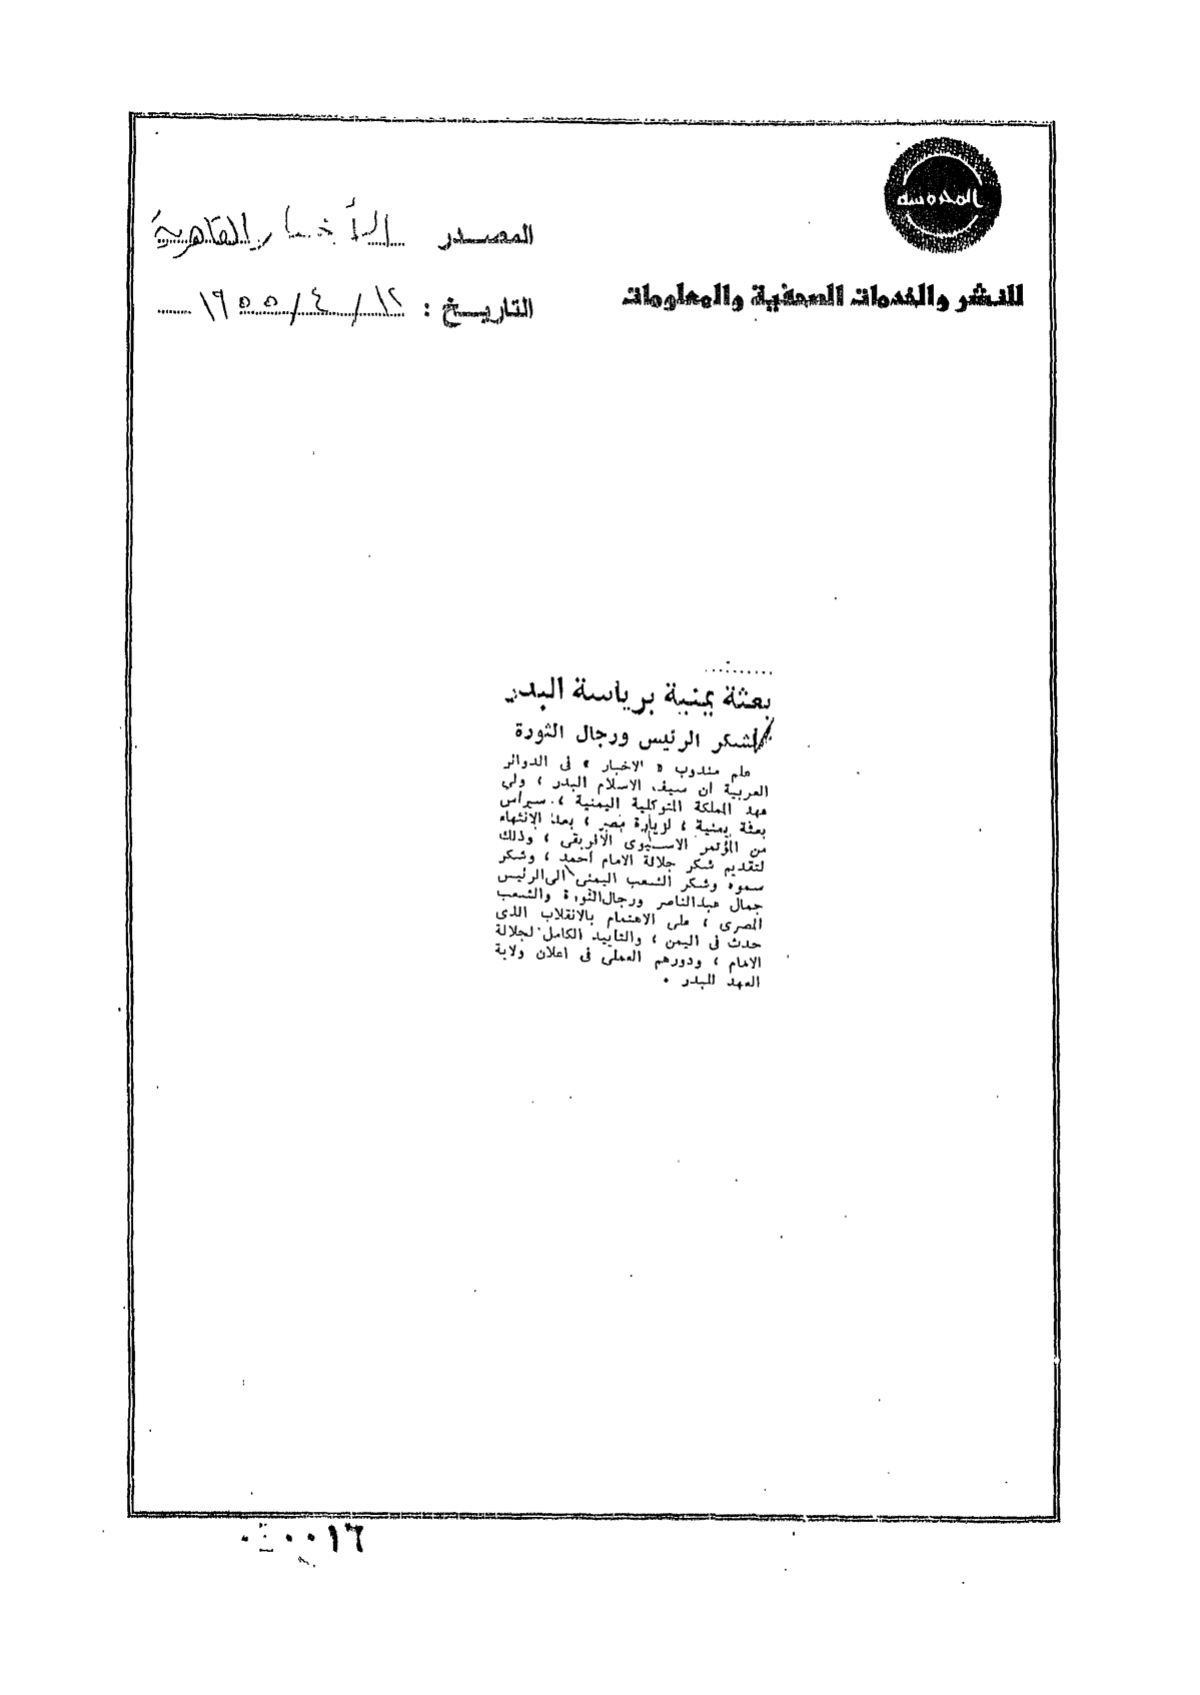 المحروسة
للنشر والخدمات الصحفية والمعلومات
المصدر الأخبار القاهرية
التاريخ : ١٢ / ٤ / ١٩٥٥
بعثة يمنية برياسة البدر
لشكر الرئيس ورجال الثورة
علم مندوب « الاخبار » فى الدوائر
العربية ان سيف الاسلام البدر ، ولي
عهد المملكة المتوكلية اليمنية ، سيرأس
بعثة يمنية ، لزيارة مصر ، بعد الانتهاء
من المؤتمر الاسيوى الافريقى ، وذلك
لتقديم شكر جلالة الامام احمد ، وشكر
سموه وشكر الشعب اليمنى الى الرئيس
جمال عبدالناصر ورجال الثورة والشعب
المصرى ، على الاهتمام بالانقلاب الذى
حدث فى اليمن ، والتأييد الكامل لجلالة
الامام ، ودورهم العملى فى اعلان ولاية
العهد للبدر .
٠٠١٦